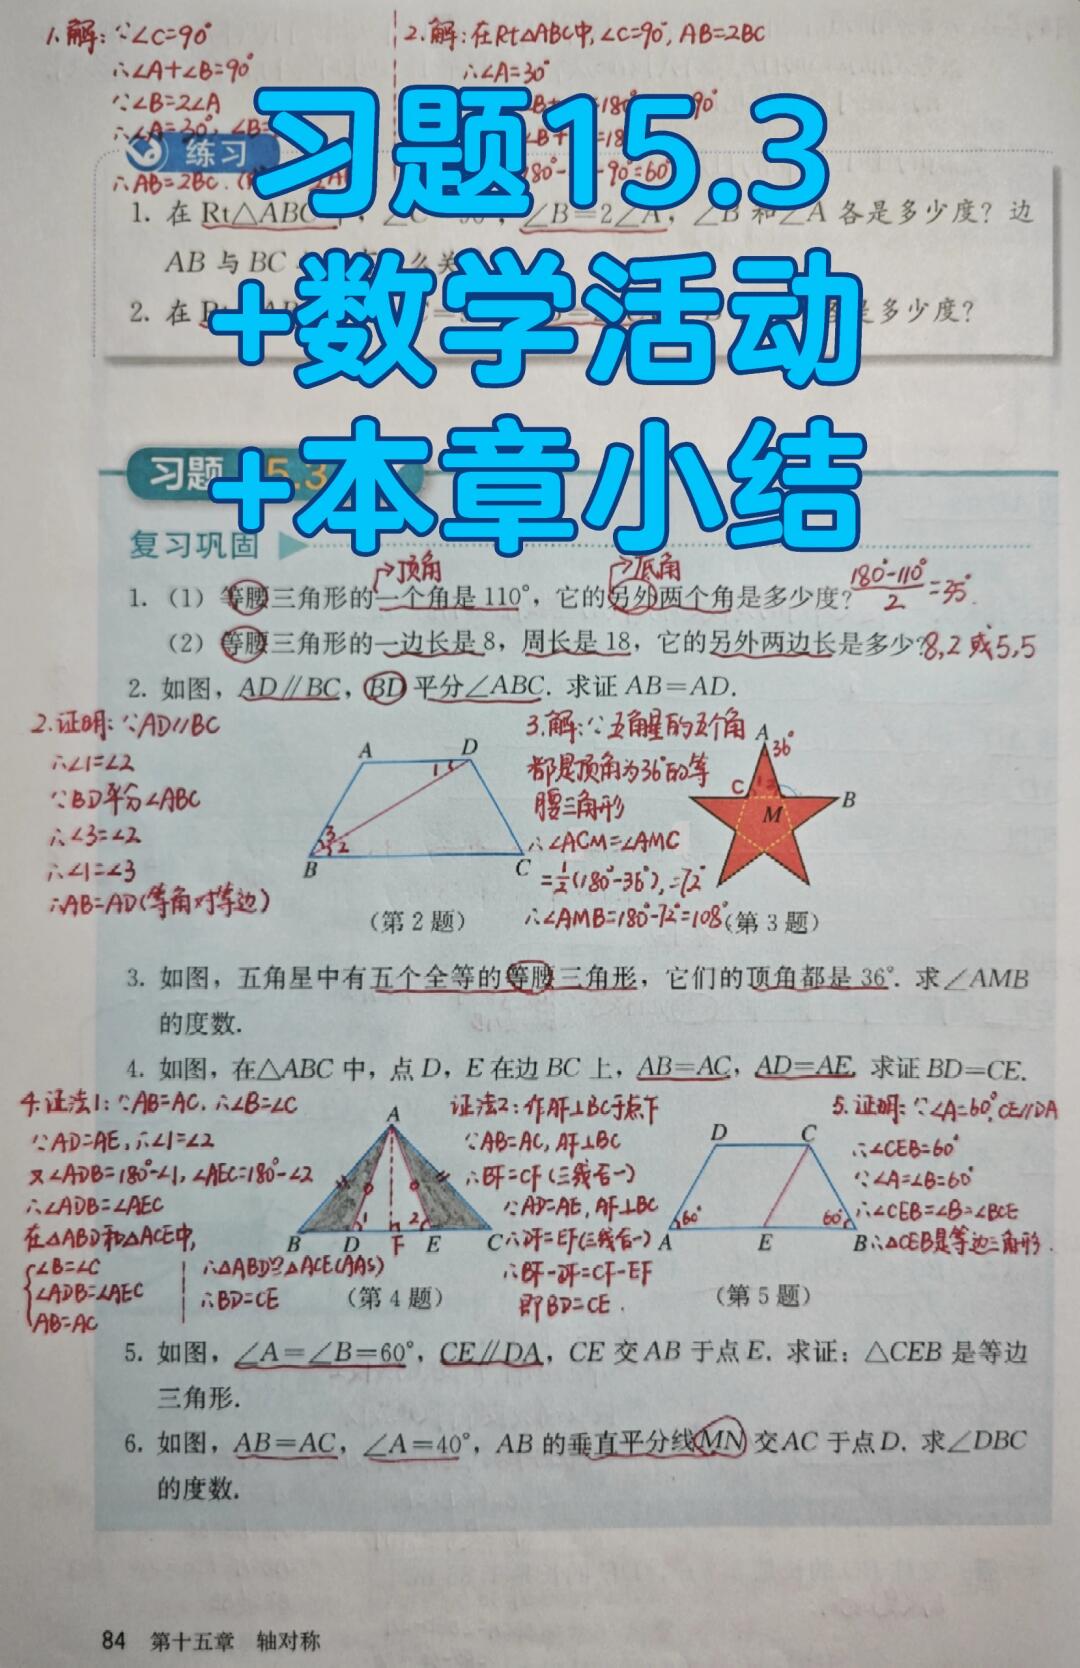 1.解:∵∠C=90°
∴∠A+∠B=90°
∵∠B=2∠A
∴∠A=30°, ∠B=
∴AB=2BC.
2.解:在Rt△ABC中,∠C=90°, AB=2BC
∴∠A=30°
=180°
90°
180°
-90°=60°
习题15.3
+数学活动
+本章小结
练习
1. 在Rt△ABC ∠B=2∠A, ∠B和∠A各是多少度? 边
AB与BC
2. 在 是多少度?
习题 15.3
复习巩固
顶角
底角
1. (1) 等腰三角形的一个角是110°, 它的另外两个角是多少度?
180°-110°/2=35°.
(2) 等腰三角形的一边长是8, 周长是18, 它的另外两边长是多少? 8,2或5,5
2. 如图, AD∥BC, BD平分∠ABC. 求证AB=AD.
2.证明:∵AD∥BC
∴∠1=∠2
∵BD平分∠ABC
∴∠3=∠2
∴∠1=∠3
∴AB=AD(等角对等边)
A
D
1
3
2
B
C
(第2题)
3.解:∵五角星的五个角
都是顶角为36°的等
腰三角形
∴∠ACM=∠AMC
=1/2(180°-36°)=72°
∴∠AMB=180°-72°=108°
A
36°
C
B
M
(第3题)
3. 如图, 五角星中有五个全等的等腰三角形, 它们的顶角都是36°. 求∠AMB
的度数.
4. 如图, 在△ABC中, 点D, E在边BC上, AB=AC, AD=AE. 求证BD=CE.
4.证法1:∵AB=AC.∴∠B=∠C
∵AD=AE,∴∠1=∠2
又∠ADB=180°-∠1,∠AEC=180°-∠2
∴∠ADB=∠AEC
在△ABD和△ACE中,
∠B=∠C
∠ADB=∠AEC
AB=AC
∴△ABD≌△ACE(AAS)
∴BD=CE
A
1
2
B
D
F
E
C
(第4题)
证法2:作AF⊥BC于点F
∵AB=AC, AF⊥BC
∴BF=CF(三线合一)
∵AD=AE, AF⊥BC
∴DF=EF(三线合一)
∴BF-DF=CF-EF
即BD=CE.
5.证明:∵∠A=60°,CE∥DA
∴∠CEB=60°
∵∠A=∠B=60°
∴∠CEB=∠B=∠BCE
∴△CEB是等边三角形.
D
C
60°
60°
A
E
B
(第5题)
5. 如图, ∠A=∠B=60°, CE∥DA, CE交AB于点E. 求证: △CEB是等边
三角形.
6. 如图, AB=AC, ∠A=40°, AB的垂直平分线MN交AC于点D. 求∠DBC
的度数.
84 第十五章 轴对称